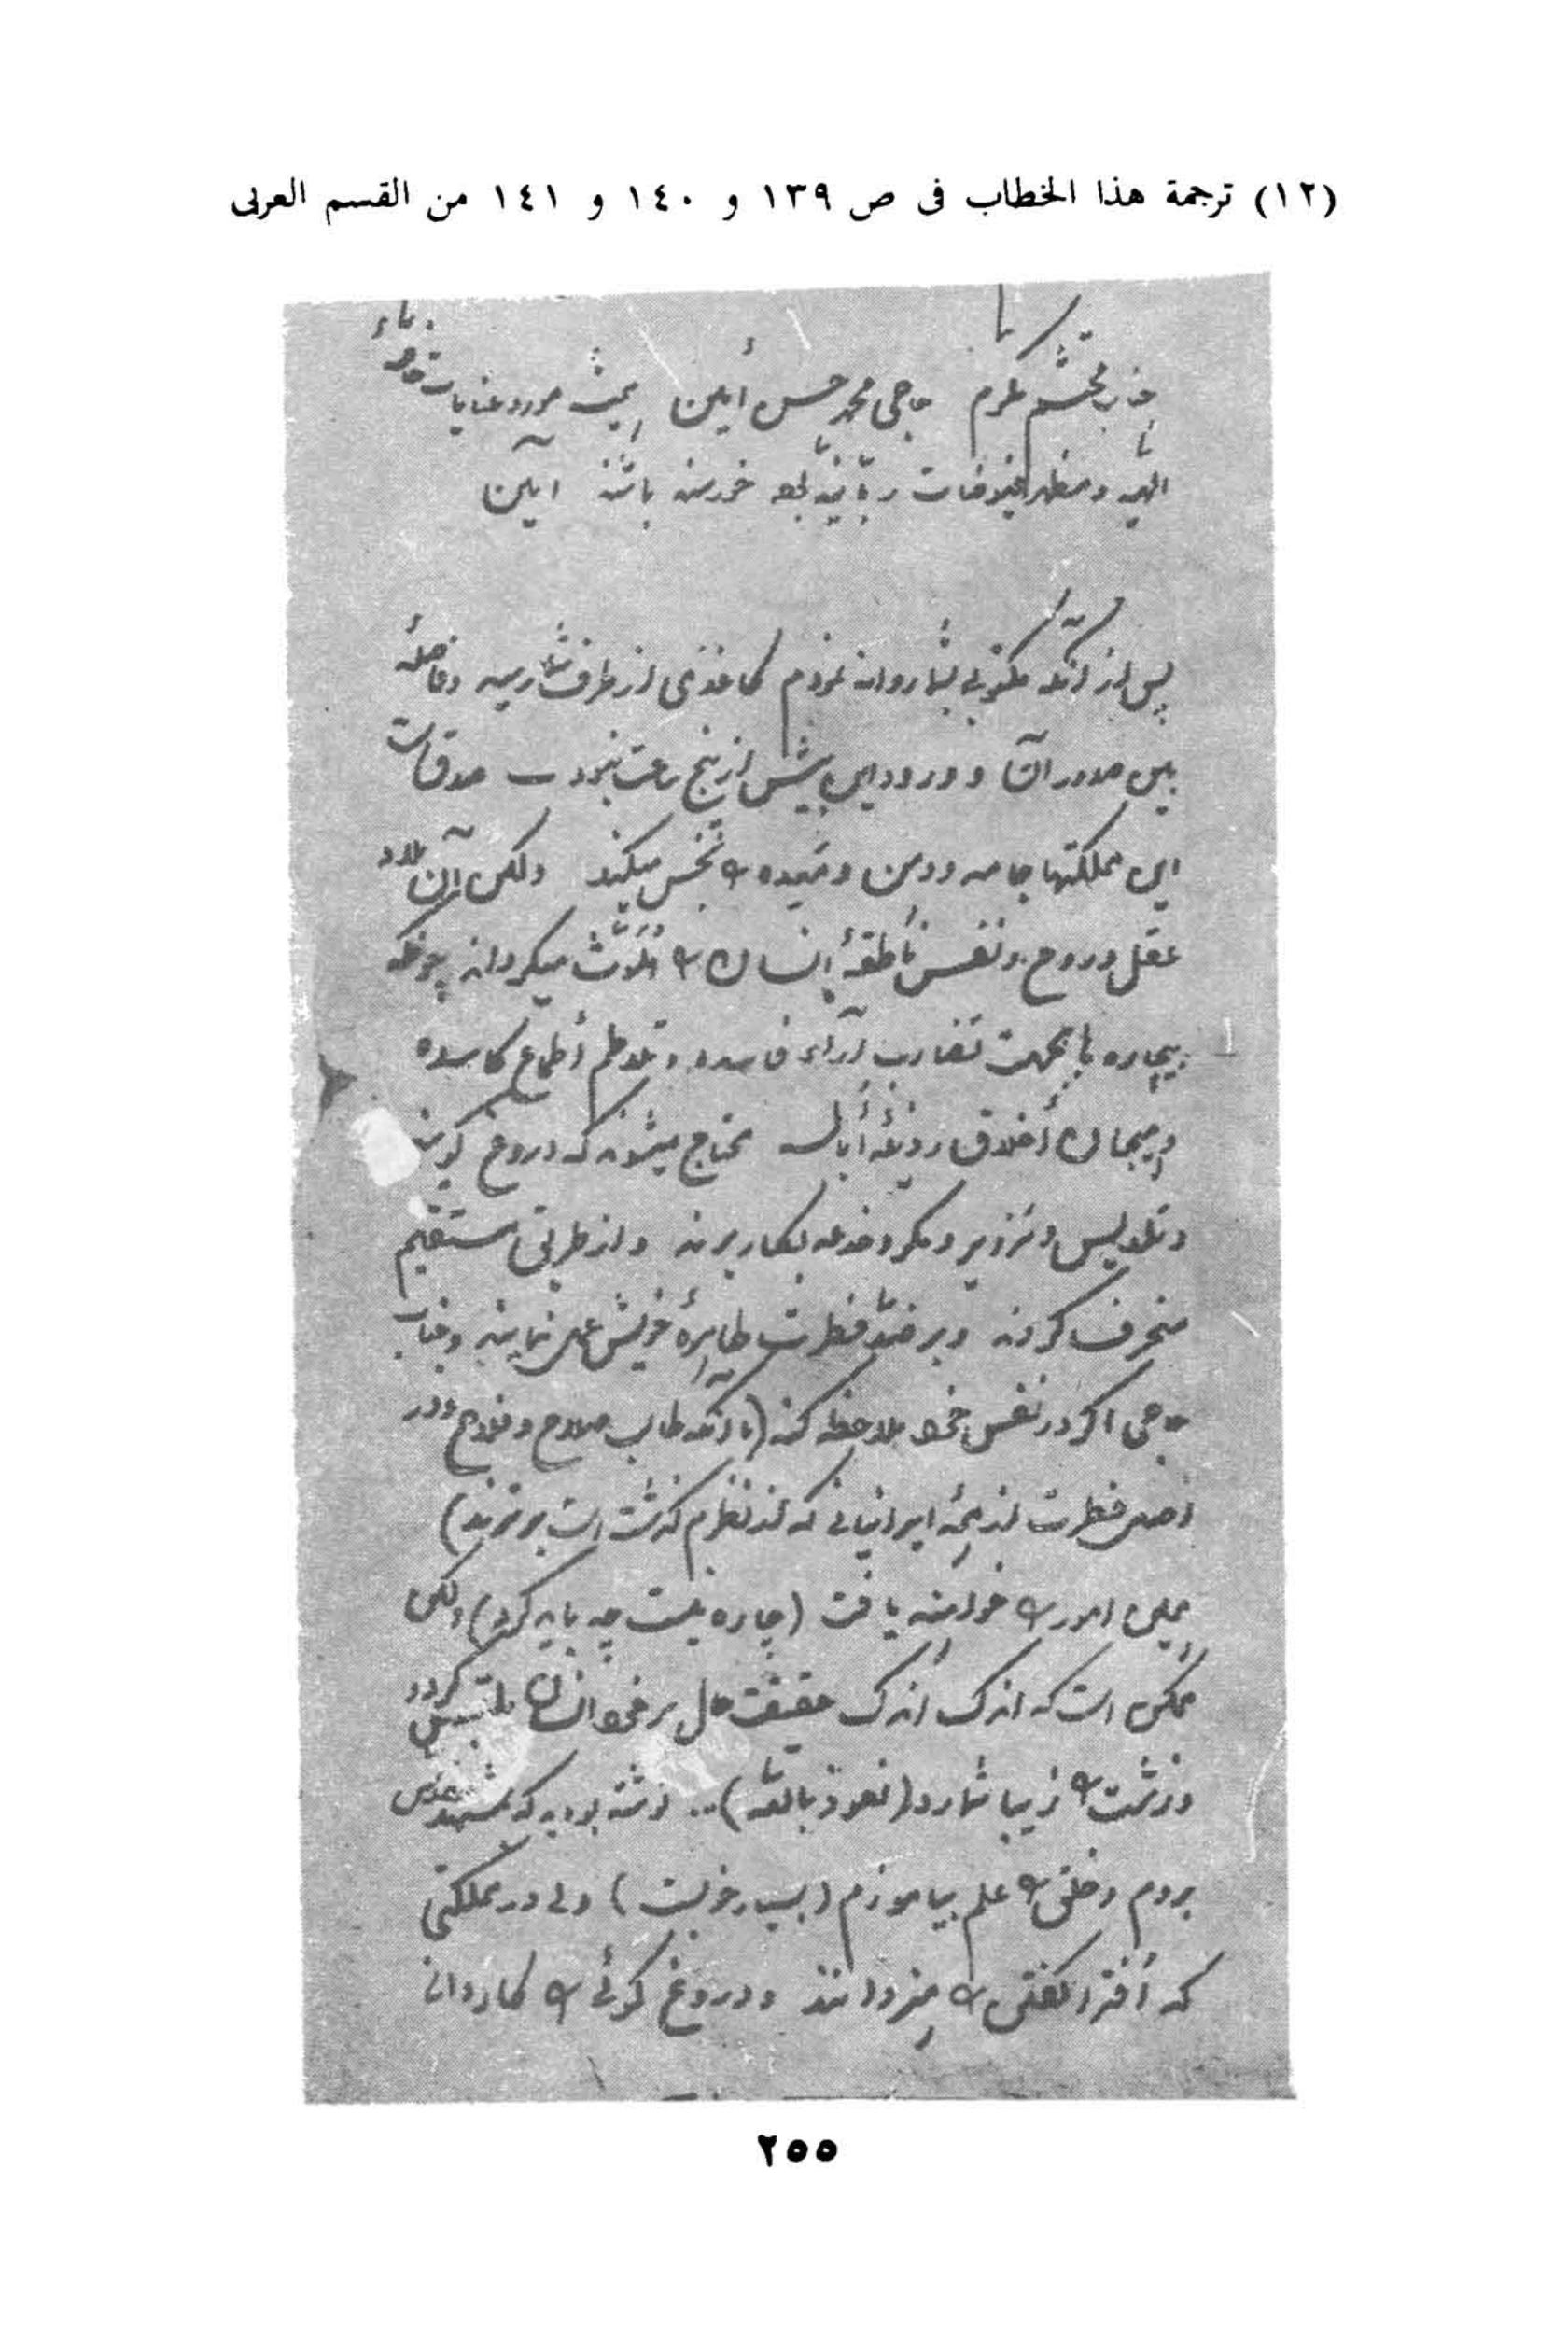 (١٢) ترجمة هذا الخطاب فى ص ١٣٩ و ١٤٠ و ١٤١ من القسم العربى
جناب محتشم مكرم حاجى محمد حسن أمين هميشه مورد عنايات خاصهٔ
الهيه ومظهر فيوضات ربّانيّه بوده خورسند باشند آمين
پس از آنكه مكتوبى بشما روانه نمودم كاغذى از طرف شما رسيد وفاصلهٔ
بين صدور آن و ورود اين بيش از پنج ساعت نبود
اين مملكتها جامه و دامن و را نجس ميكند ولكن از آن بلاد
عقل وروح ونفس ناطقهٔ إنسان را ملوّث ميگرداند چونكه
بيچاره بايد بجهت تضارب آراء فاسده وتلاطم أطماع كاسده
وهيجان أخلاق رذيلهٔ محتاج ميشوند كه دروغ گويند
وتدليس وتزوير ومكر وخدعه بكار برند و از طريق مستقيم
منحرف گردند و بر ضدّ فطرت طاهرهٔ خويش عمل نمايند وجناب
حاجى اگر در نفس خود ملاحظه كنند (با آنكه طالب صلاح وفلاح و در
اصل فطرت از همهٔ ايرانيانى كه از نظرم گذشته است برترند)
همين امور را خواهند يافت (چاره نيست چه بايد كرد) ولكن
ممكن است كه اندك اندك حقيقت حال بر خود انسان ملتبس گردد
وزشت را زيبا شمارد (نعوذ بالله) .. نوشته بوديد كه بمشهد مقدس
بروم وخلق را علم بياموزم (بسيار خوبست) ولى در مملكتى
كه افترا گفتن را هنر دانند ودروغ گوئى را كاردانى
٢٥٥